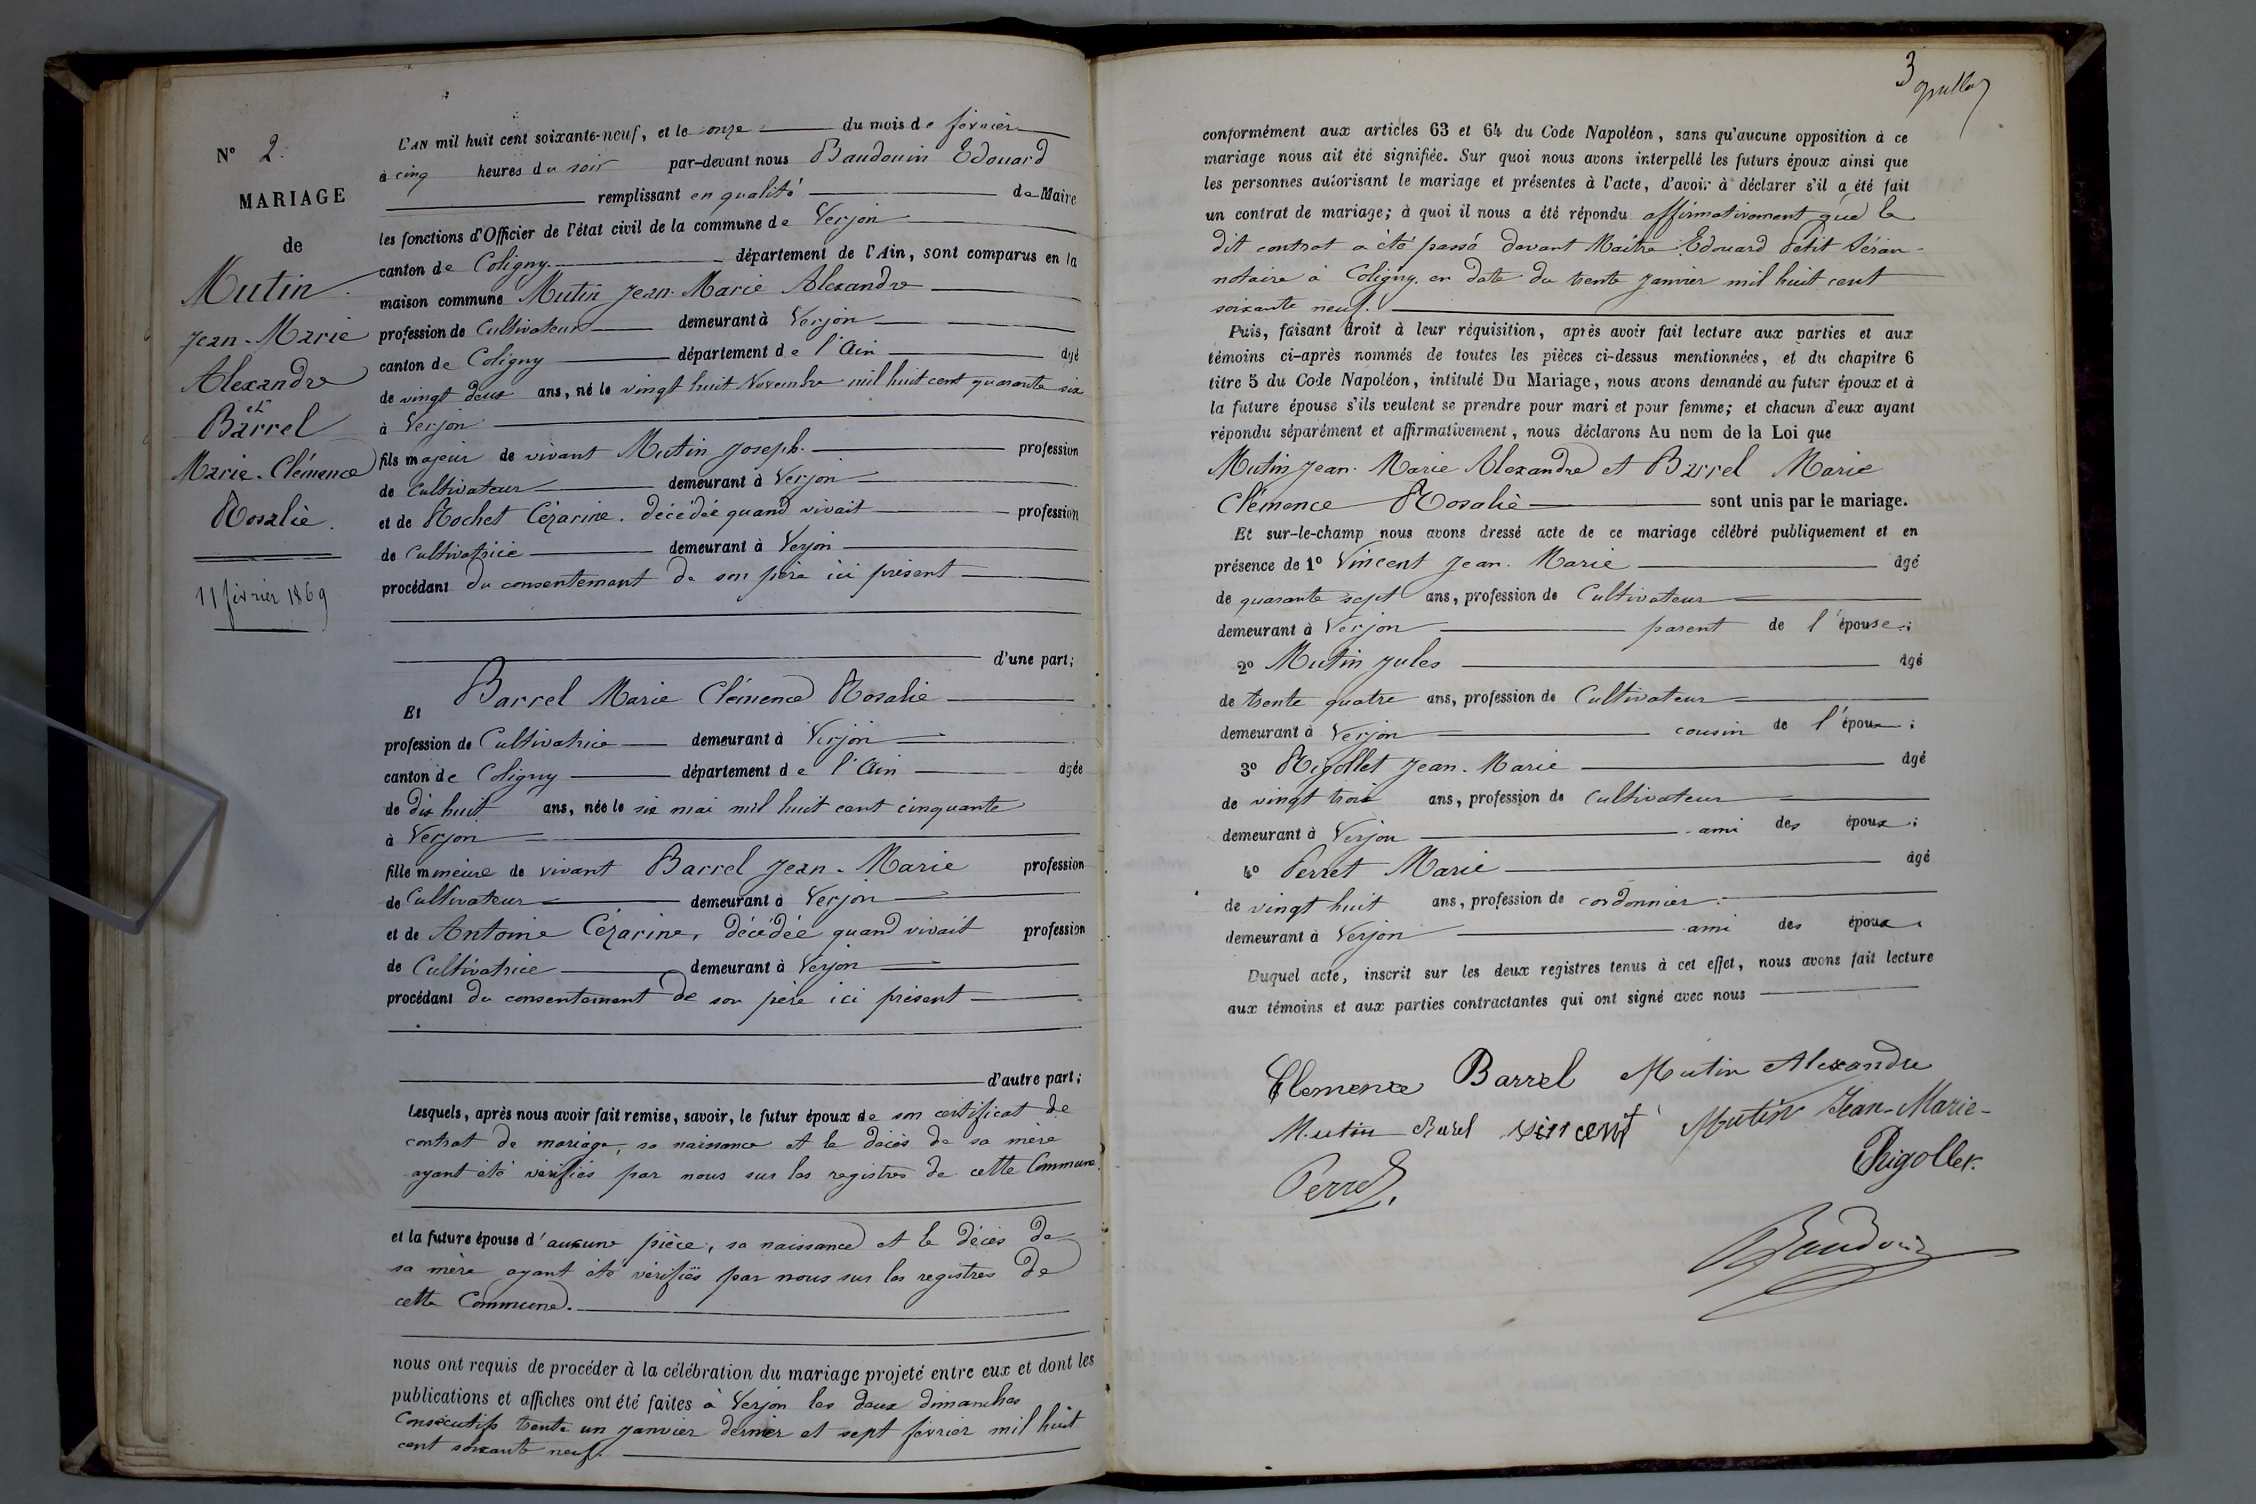 N° 2.
MARIAGE
de
Mutin
Jean-Marie
Alexandre
et
Barrel
Marie-Clémence
Rosalie.
11 février 1869
L'AN mil huit cent soixante-neuf, et le onze du mois de février
à cinq heures du soir par-devant nous Baudouin Edouard
remplissant en qualité de Maire
les fonctions d'Officier de l'état civil de la commune de Verjon
canton de Coligny. département de l'Ain, sont comparus en la
maison commune Mutin Jean-Marie Alexandre
profession de Cultivateur demeurant à Verjon
canton de Coligny département de l'Ain âgé
de vingt deux ans, né le vingt huit Novembre mil huit cent quarante six
à Verjon
fils majeur de vivant Mutin Joseph. profession
de Cultivateur demeurant à Verjon
et de Rochet Cézarine. décédée quand vivait profession
de Cultivatrice demeurant à Verjon
procédant du consentement de son père ici présent
d'une part;
Et Barrel Marie Clémence Rosalie
profession de Cultivatrice demeurant à Verjon
canton de Coligny département de l'Ain âgée
de dix huit ans, née le six mai mil huit cent cinquante
à Verjon
fille mineure de vivant Barrel Jean-Marie profession
de Cultivateur demeurant à Verjon
et de Antoine Cézarine, décédée quand vivait profession
de Cultivatrice demeurant à Verjon
procédant du consentement de son père ici présent
d'autre part;
Lesquels, après nous avoir fait remise, savoir, le futur époux de son certificat de
contrat de mariage, sa naissance et le décès de sa mère
ayant été vérifiés par nous sur les registres de cette Commune.
et la future épouse d'aucune pièce, sa naissance et le décès de
sa mère ayant été vérifiés par nous sur les registres de
cette Commune.
nous ont requis de procéder à la célébration du mariage projeté entre eux et dont les
publications et affiches ont été faites à Verjon les deux dimanches
consécutifs trente un janvier dernier et sept février mil huit
cent soixante neuf.
3
conformément aux articles 63 et 64 du Code Napoléon, sans qu'aucune opposition à ce
mariage nous ait été signifiée. Sur quoi nous avons interpellé les futurs époux ainsi que
les personnes autorisant le mariage et présentes à l'acte, d'avoir à déclarer s'il a été fait
un contrat de mariage; à quoi il nous a été répondu affirmativement que le
dit contrat a été passé devant Maître Edouard Petit
notaire à Coligny, en date du trente janvier mil huit cent
soixante neuf.
Puis, faisant droit à leur réquisition, après avoir fait lecture aux parties et aux
témoins ci-après nommés de toutes les pièces ci-dessus mentionnées, et du chapitre 6
titre 5 du Code Napoléon, intitulé Du Mariage, nous avons demandé au futur époux et à
la future épouse s'ils veulent se prendre pour mari et pour femme; et chacun d'eux ayant
répondu séparément et affirmativement, nous déclarons Au nom de la Loi que
Mutin Jean-Marie Alexandre et Barrel Marie
Clémence Rosalie sont unis par le mariage.
Et sur-le-champ nous avons dressé acte de ce mariage célébré publiquement et en
présence de 1° Vincent Jean-Marie âgé
de quarante sept ans, profession de Cultivateur
demeurant à Verjon parent de l'épouse;
2° Mutin Jules âgé
de trente quatre ans, profession de Cultivateur
demeurant à Verjon cousin de l'époux;
3° Rigollet Jean-Marie âgé
de vingt trois ans, profession de Cultivateur
demeurant à Verjon ami des époux;
4° Perret Marie âgé
de vingt huit ans, profession de cordonnier.
demeurant à Verjon ami des époux.
Duquel acte, inscrit sur les deux registres tenus à cet effet, nous avons fait lecture
aux témoins et aux parties contractantes qui ont signé avec nous
Clemence Barrel Mutin Alexandre
Mutin Barel vincent Mutin Jean-Marie
Rigollet.
Perret.
Baudouin